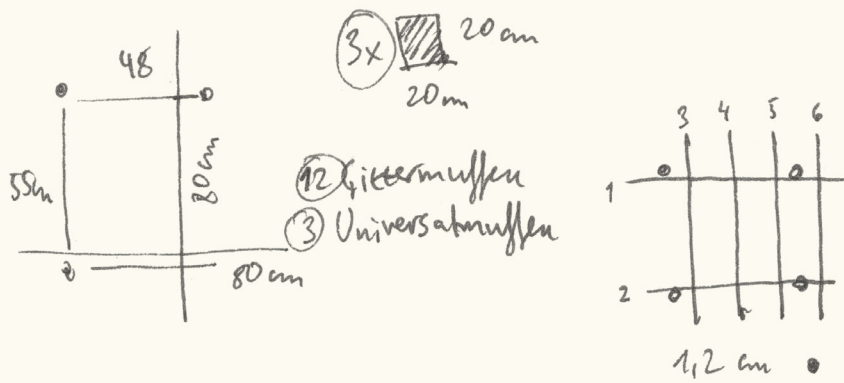 48
55cm
80cm
80cm
3x
20cm
20cm
12 Gittermuffen
3 Universalmuffen
3 4 5 6
1
2
1,2 cm